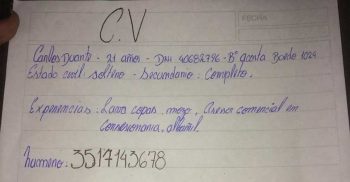 C.V
FECHA
Carlos Duarte - 21 años - DNI 40682796 - Bº acosta Bordo 1024
Estado civil soltero - Secundario: Completo.
Experiencias: Lava copas, mozo, Asesor comercial en
Concesionaria, albañil.
numero: 3517143678